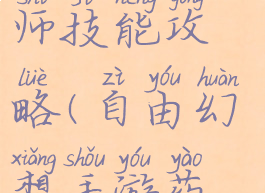 shī jì néng gōng
师技能攻
lüè zì yóu huàn
略(自由幻
xiǎng shǒu yóu yào
想手游药